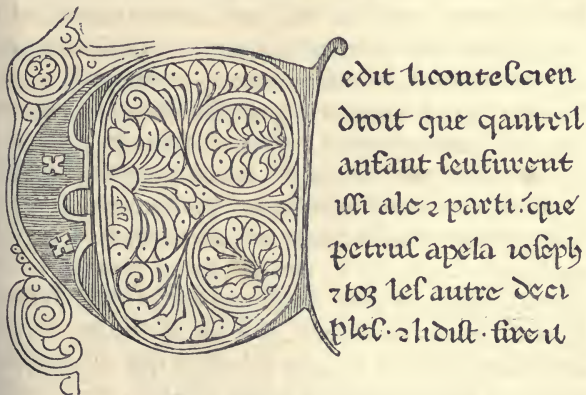 Cedit liconteſcien
droit que qantcil
anfant ſenfurent
iſſi ale ⁊ parti. que
petruſ apela ioſeph
⁊toz leſ autre deci
pleſ · ⁊lidiſt · ſire il